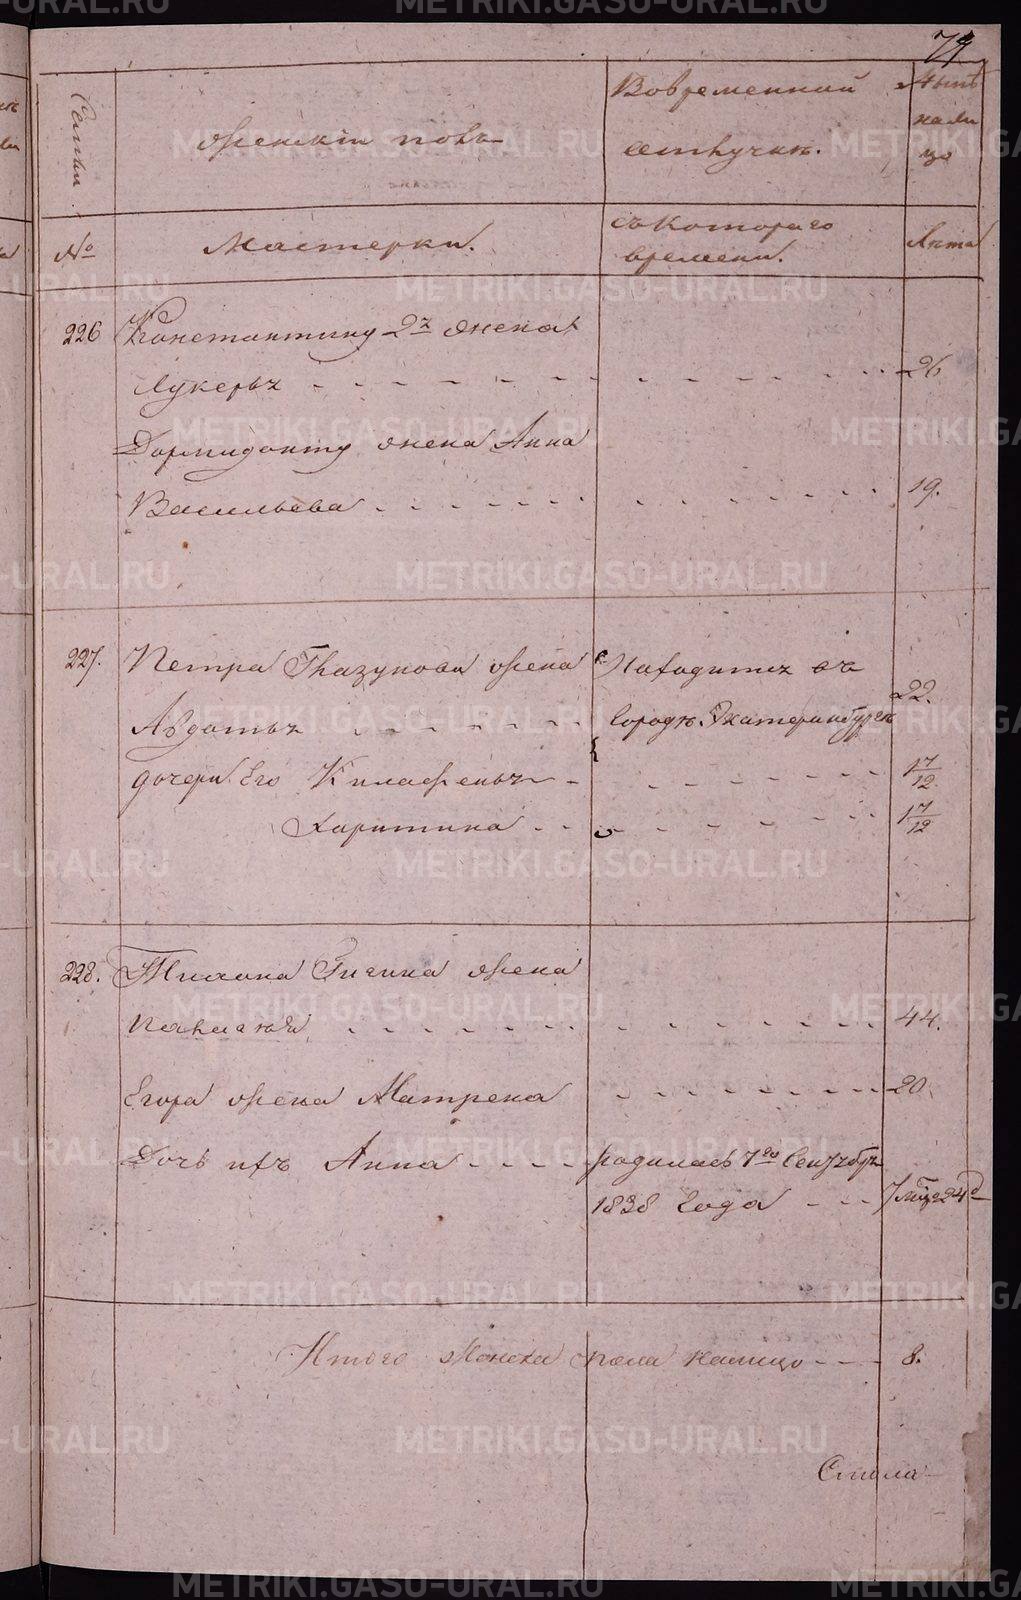 79
Семьи
Женскій полъ
Вовременной
отлучкѣ.
Нынѣ
нали
цо
№
Мастерки.
съ котораго
времени.
Лѣта
226 Константину 2й жена
Лукерья - - - - - - - - - - - - 26
Дормидонту жена Анна
Васильева - - - - - - - - - - - 19.
227. Петра Глазунова жена Находится въ
Авдотья - - - - - - Городѣ Екатеринбургѣ 22.
дочери Его - - - - - - - 1 7/12
Харитина - - - - - - - - - 1 7/12
228. Тихона жена
Пелагея - - - - - - - - - - - - 44.
Егора жена Матрена - - - - - - - 20.
Дочь ихъ Анна - - - - родилась 7го Сентября
1838 Года - - - 7 мѣс 24 д
Итого Женска пола налицо - - - 8.
METRIKI.GASO-URAL.RU